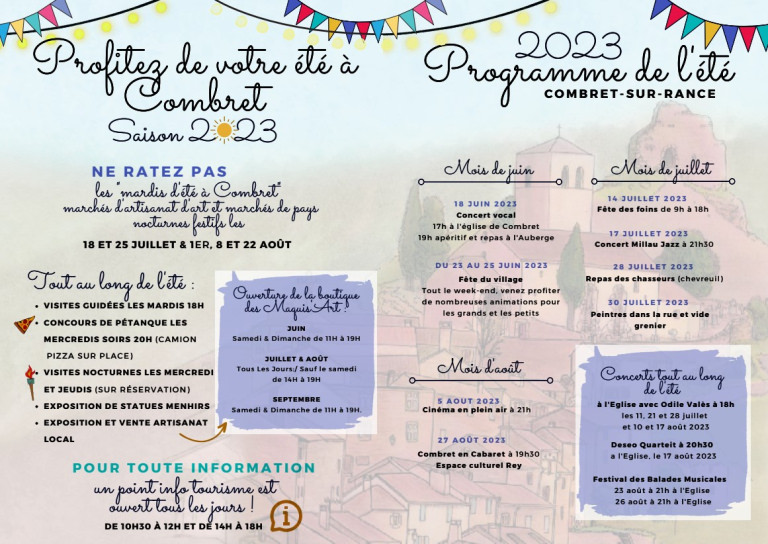 Profitez de votre été à
Combret
Saison 2023
NE RATEZ PAS
les "mardis d'été à Combret"
marchés d'artisanat d'art et marchés de pays
nocturnes festifs les
18 ET 25 JUILLET & 1ER, 8 ET 22 AOÛT
Tout au long de l'été :
VISITES GUIDÉES LES MARDIS 18H
CONCOURS DE PÉTANQUE LES
MERCREDIS SOIRS 20H (CAMION
PIZZA SUR PLACE)
VISITES NOCTURNES LES MERCREDI
ET JEUDIS (SUR RÉSERVATION)
EXPOSITION DE STATUES MENHIRS
EXPOSITION ET VENTE ARTISANAT
LOCAL
Ouverture de la boutique
des Maquis'Art :
JUIN
Samedi & Dimanche de 11H à 19H
JUILLET & AOÛT
Tous Les Jours/ Sauf le samedi
de 14H à 19H
SEPTEMBRE
Samedi & Dimanche de 11H à 19H.
POUR TOUTE INFORMATION
un point info tourisme est
ouvert tous les jours !
DE 10H30 À 12H ET DE 14H À 18H
i
2023
Programme de l'été
COMBRET-SUR-RANCE
Mois de juin
18 JUIN 2023
Concert vocal
17h à l'église de Combret
19h apéritif et repas à l'Auberge
DU 23 AU 25 JUIN 2023
Fête du village
Tout le week-end, venez profiter
de nombreuses animations pour
les grands et les petits
Mois d'août
5 AOUT 2023
Cinéma en plein air à 21h
27 AOÛT 2023
Combret en Cabaret à 19h30
Espace culturel Rey
Mois de juillet
14 JUILLET 2023
Fête des foins de 9h à 18h
17 JUILLET 2023
Concert Millau Jazz à 21h30
28 JUILLET 2023
Repas des chasseurs (chevreuil)
30 JUILLET 2023
Peintres dans la rue et vide
grenier
Concerts tout au long
de l'été
à l'Eglise avec Odile Valès à 18h
les 11, 21 et 28 juillet
et 10 et 17 août 2023
Deseo Quarteit à 20h30
a l'Eglise, le 17 août 2023
Festival des Balades Musicales
23 août à 21h à l'Eglise
26 août à 21h à l'Eglise